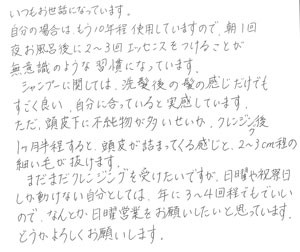 いつもお世話になっています。
自分の場合は、もう10年程使用していますので、朝1回
夜お風呂後に2〜3回エッセンスをつけることが
無意識のような習慣になっています。
シャンプーに関しては、洗髪後の髪の感じだけでも
すごく良い、自分に合っていると実感しています。
ただ、頭皮下に不純物が多いせいか、クレンジング後
1ヶ月半程すると、頭皮が詰まってくる感じと、2〜3cm程の
細い毛が抜けます。
まだまだクレンジングを受けたいですが、日曜や祝祭日
しか動けない自分としては、年に3〜4回程でもでいい
ので、なんとか日曜営業をお願いしたいと思っています。
どうかよろしくお願いします。